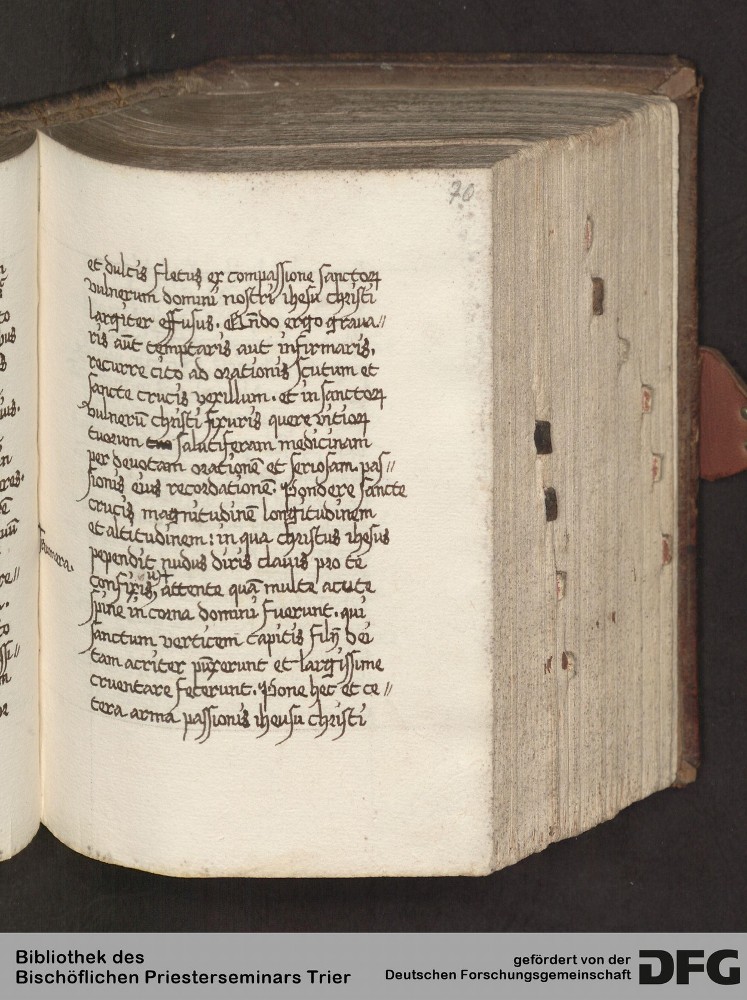 70
et dulcis fletus ex compassione sanctoꝝ
vulnerum domini nostri ihesu christi
largiter effusus. Qn̄do ergo graua//
ris aūt temptaris aut infirmaris,
recurre cito ad orationis scutum et
sancte crucis vexillum. et in sanctoꝝ
vulnerū christi fixuris quere vitioꝝ
tuorum salutiferam medicinam
per deuotam orationē et seriosam pas//
sionis eius recordationē. Pondere sancte
crucis magnitudinē longitudinem
et altitudinem: in qua christus ihesus
pependit nudus diris clauis pro te
confixis, attente quā multe acute
spine in corna domini fuerunt. qui
sanctum verticem capitis filij dei
tam acriter pūxerunt et largissime
cruentare fecerunt. Pone hec et ce//
tera arma passionis iheusu christi
Bibliothek des
Bischöflichen Priesterseminars Trier
gefördert von der
Deutschen Forschungsgemeinschaft
DFG